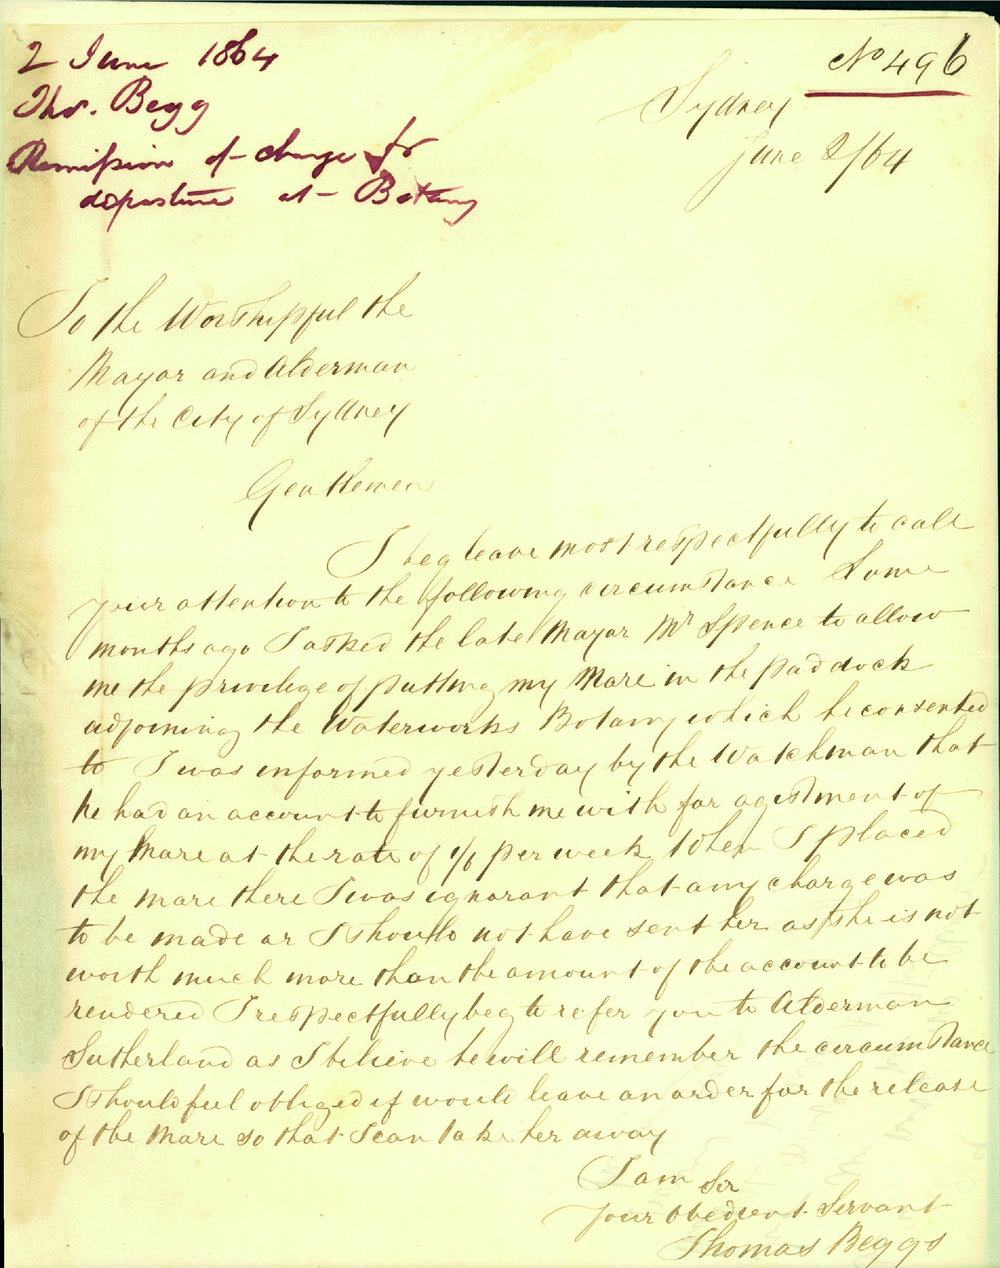 2 June 1864
Thos. Begg
Remission of charge for
depasture at Botany
No 496
Sydney
June 2/64
To the Worshipful the
Mayor and Alderman
of the City of Sydney
Gentlemen
I beg leave most respectfully to call
your attention to the following circumstance Some
months ago I asked the late Mayor Mr Spence to allow
me the privilege of putting my Mare in the paddock
adjoining the Waterworks Botany which he consented
to I was informed yesterday by the Watchman that
he had an account to furnish me with for agistment of
my Mare at the rate of 1/6 per week When I placed
the mare there I was ignorant that any charge was
to be made or I should not have sent her as she is not
worth much more than the amount of the account to be
rendered I respectfully beg to refer you to Alderman
Sutherland as I believe he will remember the circumstance
I should feel obliged if would leave an order for the release
of the Mare so that I can take her away
I am Sir
Your Obedient Servant
Thomas Beggs